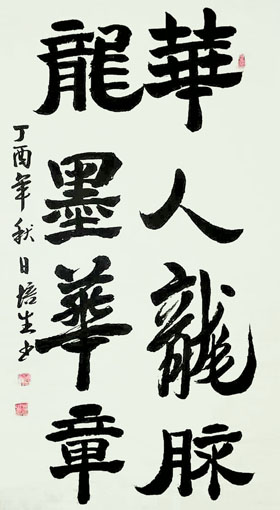 華人龍脉
龍墨華章
丁酉年秋日培生书